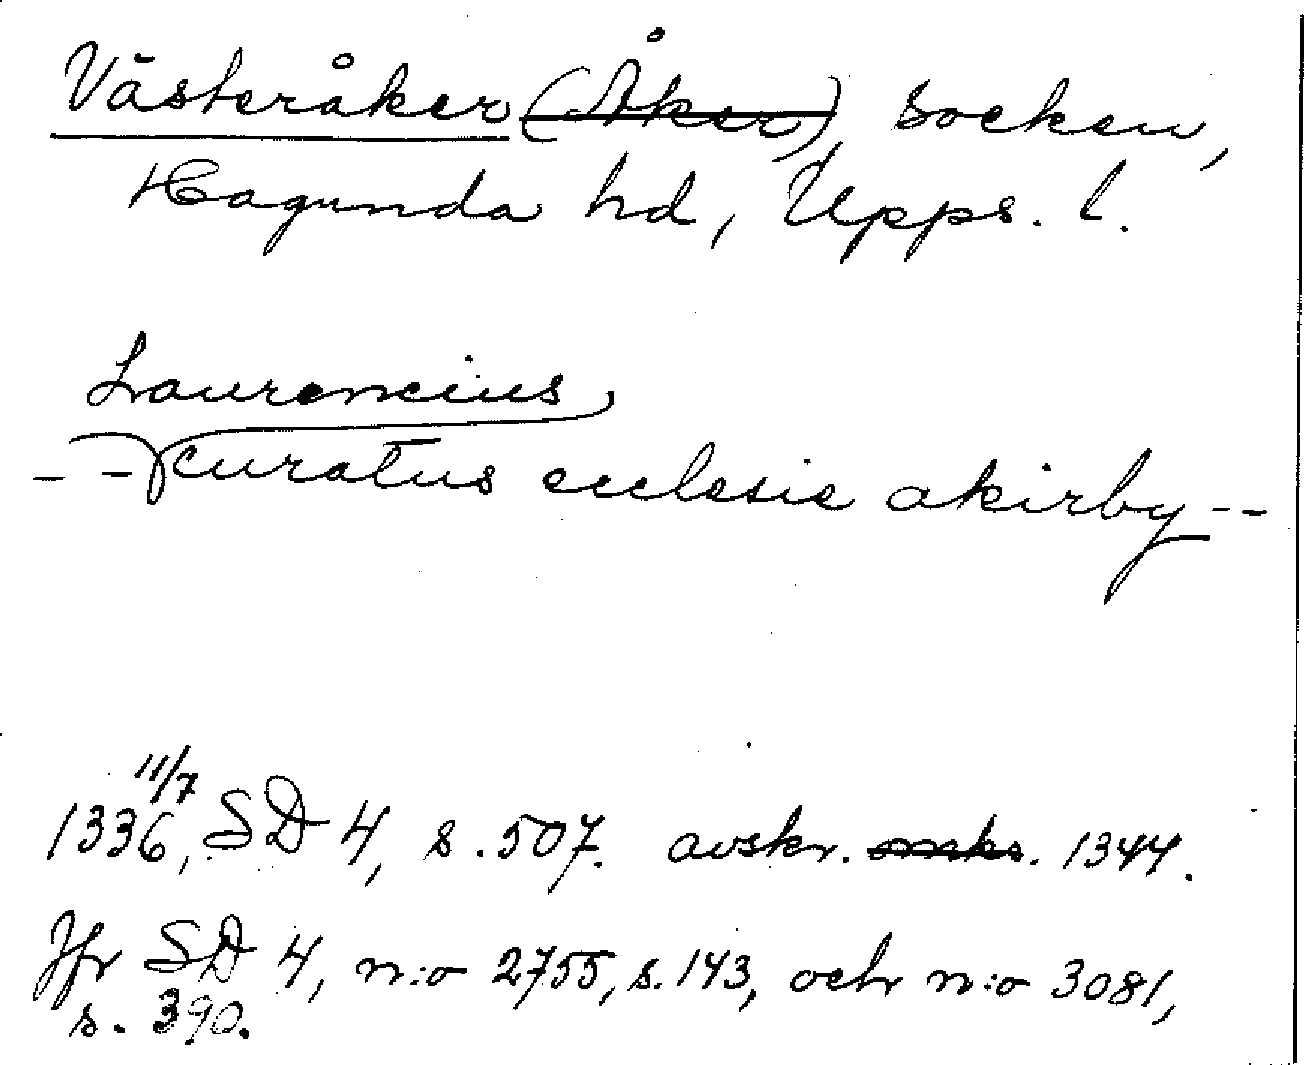 Västeråker (Åker), socken,
Hagunda hd, Upps. l.
Laurencius
- - curatus ecclesie akirby - -
11/7
1336, SD 4, s. 507. avskr. 1344.
Jfr SD 4, n:o 2755, s. 143, och n:o 3081,
s. 390.